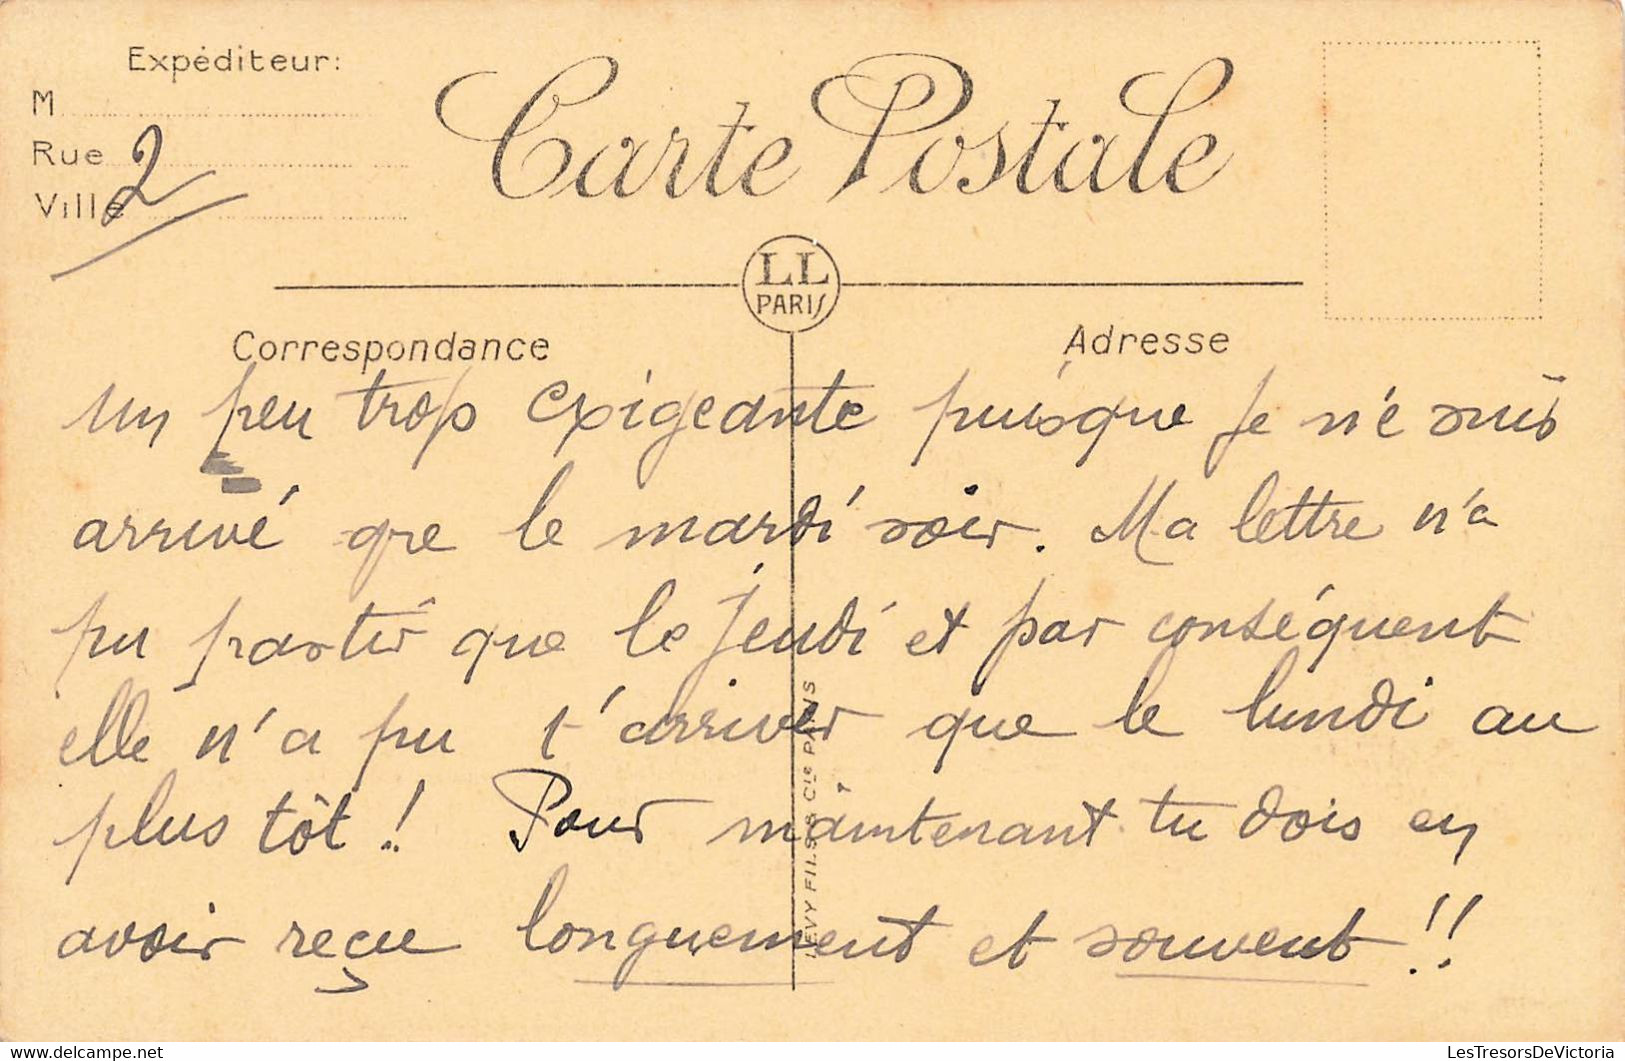 Expéditeur:
M
Rue
Ville
2
Carte Postale
LL
PARIS
Correspondance
Adresse
un peu trop exigeante puisque je ne suis
arrivé que le mardi soir. Ma lettre n'a
pu partir que le jeudi et par conséquent
elle n'a pu t'arriver que le lundi au
plus tôt! Pour maintenant tu dois en
avoir reçue longuement et souvent!!
LEVY FILS & Cie PARIS
LesTresorsDeVictoria